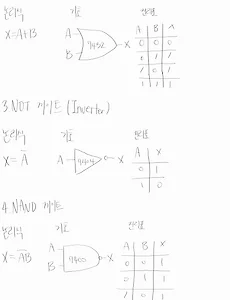 논리식 기호 진리표
X=A+B A B 7432 X A B X
0 0 0
0 1 1
1 0 1
1 1 1
3 NOT 게이트 (Inverter)
논리식 기호 진리표
X = A̅ A 7404 X A X
0 1
1 0
4. NAND 게이트
논리식 기호 진리표
X = A̅B̅ A B 7400 X A B X
0 0 1
0 1 1
1 0 1